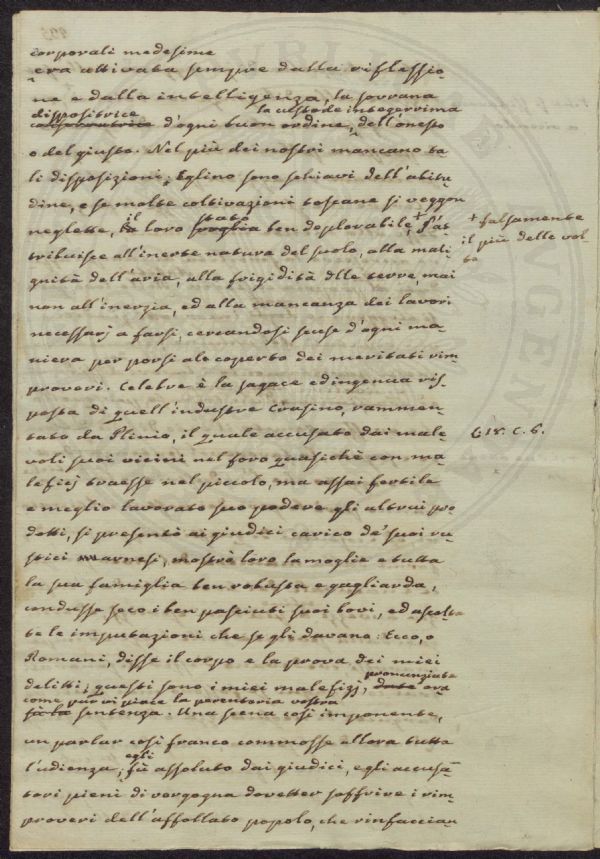 corporali medesime
era attivata sempre dalla riflessio-
ne e dalla intelligenza, la sovrana
dispositrice la custode integerrima
conservatrice d'ogni buon ordine, dell'onesto
o del giusto. Nel più dei nostri mancano ta-
li disposizioni; Eglino sono schiavi dell'abitu-
dine, e se molte coltivazioni toscane si veggon
il stato
neglette, la loro ben deplorabile + s'at-
tribuisce all'inerte natura del suolo, alla mali-
gnità dell'aria, alla frigidità dlle terre, mai
non all'inerzia, ed alla mancanza dei lavori
necessarj a farsi, cercandosi scuse d'ogni ma-
niera per porsi al coperto dei meritati rim-
proveri. Celebre è la sagace ed ingenua ris-
posta di quell'industre Cresino, rammen-
tato da Plinio, il quale accusato dai male-
voli suoi vicini nel foro quasichè con ma-
lefizj traesse nel piccolo, ma assai fertile
e meglio lavorato suo podere gli altrui pro-
dotti, si presentò ai giudici carico de' suoi ru-
stici arnesi, mostrò loro la moglie e tutta
la sua famiglia ben robusta e gagliarda,
condusse seco i ben pasciuti suoi bovi, ed ascolta-
te le imputazioni che se gli davano: Ecco, o
Romani, disse il corpo e la prova dei miei
pronunziate
delitti; questi sono i miei malefizj, date ora
come pur vi piace la perentoria vostra
sentenza. Una scena così imponente,
un parlar così franco commosse allora tutta
egli
l'udienza; fù assoluto dai giudici, e gli accusa-
tori pieni di vergogna dovetter soffrire i rim-
proveri dell'affollato popolo, che rinfaccian
+ falsamente
il più delle vol-
te
L. 18. C. 6.